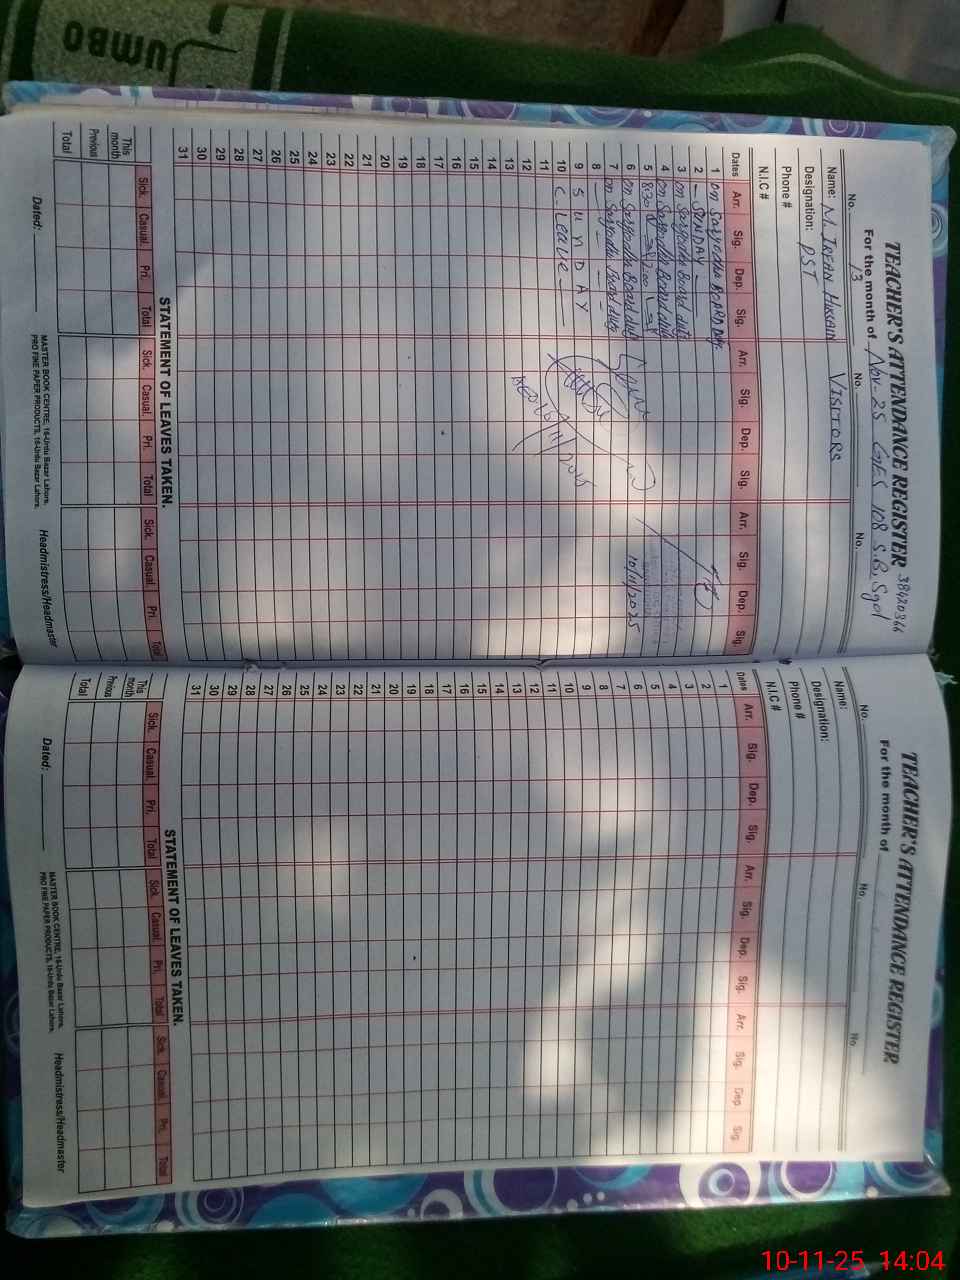 JUMBO
TEACHER'S ATTENDANCE REGISTER 38420366
For the month of Nov-25 GES 108 S.B, Sgd
No. 13 No. No.
Name: M. IRFAN HUSSAIN VISITORS
Designation: PST
Phone #
N.I.C #
Dates Arr. Sig. Dep. Sig. Arr. Sig. Dep. Sig. Arr. Sig. Dep. Sig.
1 on Sargodha BOARD Duty
2 SUNDAY
3 on Sargodha Board duty
4 on Sargodha Board duty
5 8:30 2:00
6 on Sargodha Board duty
7 on Sargodha Board duty
8
9 SUNDAY
10 C-Leave
11
12
13
14
15
16
17
18
19
20
21
22
23
24
25
26
27
28
29
30
31
10/11/2025
STATEMENT OF LEAVES TAKEN.
Sick. Casual. Pri. Total Sick. Casual. Pri. Total Sick. Casual. Pri. Total
This month
Previous
Total
MASTER BOOK CENTRE, 16-Urdu Bazar Lahore.
PRO FINE PAPER PRODUCTS, 16-Urdu Bazar Lahore.
Dated: Headmistress/Headmaster
TEACHER'S ATTENDANCE REGISTER
For the month of
No. No. No.
Name:
Designation:
Phone #
N.I.C #
Dates Arr. Sig. Dep. Sig. Arr. Sig. Dep. Sig. Arr. Sig. Dep Sig.
1
2
3
4
5
6
7
8
9
10
11
12
13
14
15
16
17
18
19
20
21
22
23
24
25
26
27
28
29
30
31
STATEMENT OF LEAVES TAKEN.
Sick. Casual. Pri. Total Sick. Casual. Pri. Total Sick. Casual. Pri. Total
This month
Previous
Total
MASTER BOOK CENTRE, 16-Urdu Bazar Lahore.
PRO FINE PAPER PRODUCTS, 16-Urdu Bazar Lahore.
Dated: Headmistress/Headmaster
10-11-25 14:04